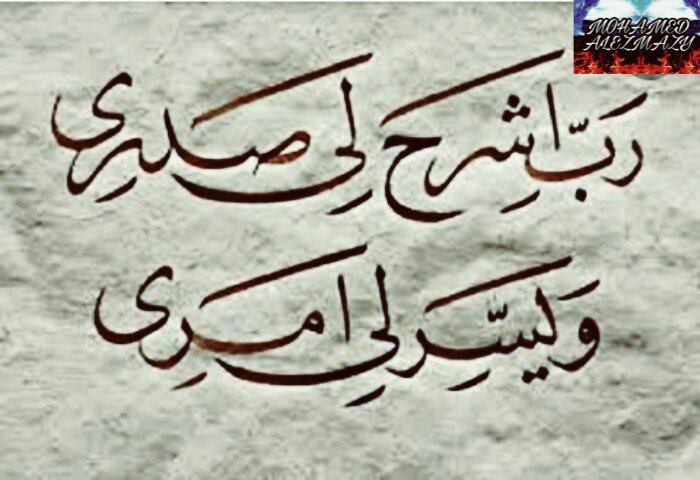 MOHAMED
ALEZMAZY
رَبِّ اشرَح لِي صَدرِي
وَيَسِّرلِي امرِي